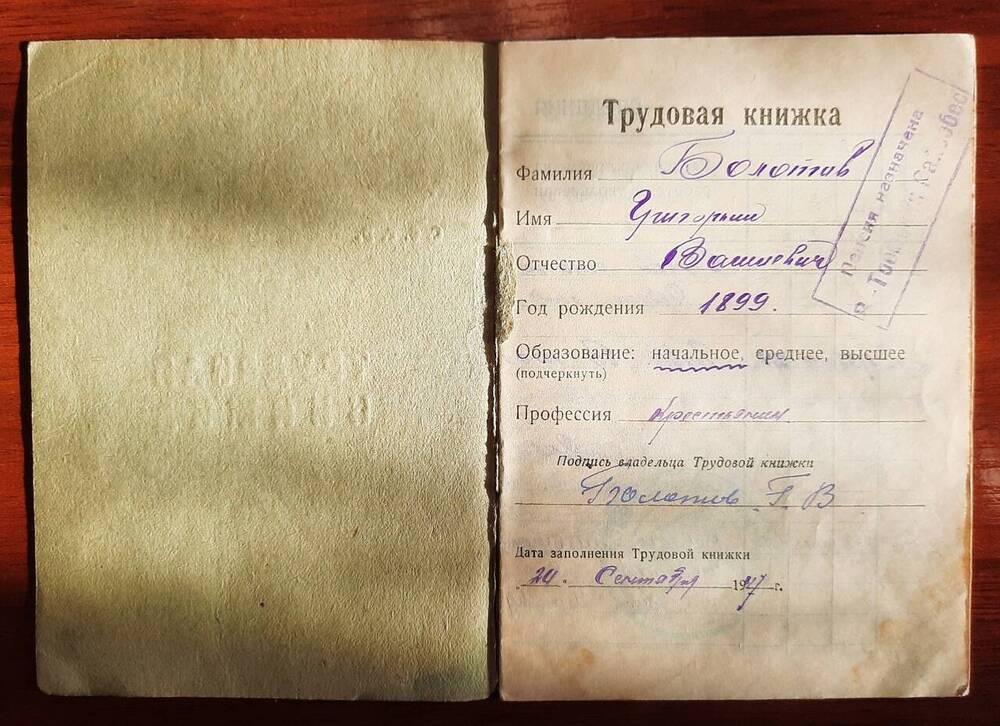 Трудовая книжка
Фамилия Болотов
Имя Григорий
Отчество
Год рождения 1899.
Образование: начальное, среднее, высшее
(подчеркнуть)
Профессия Крестьянин
Подпись владельца Трудовой книжки
Болотов Г. В
Дата заполнения Трудовой книжки
24. Сентября 1947 г.
Пенсия назначена